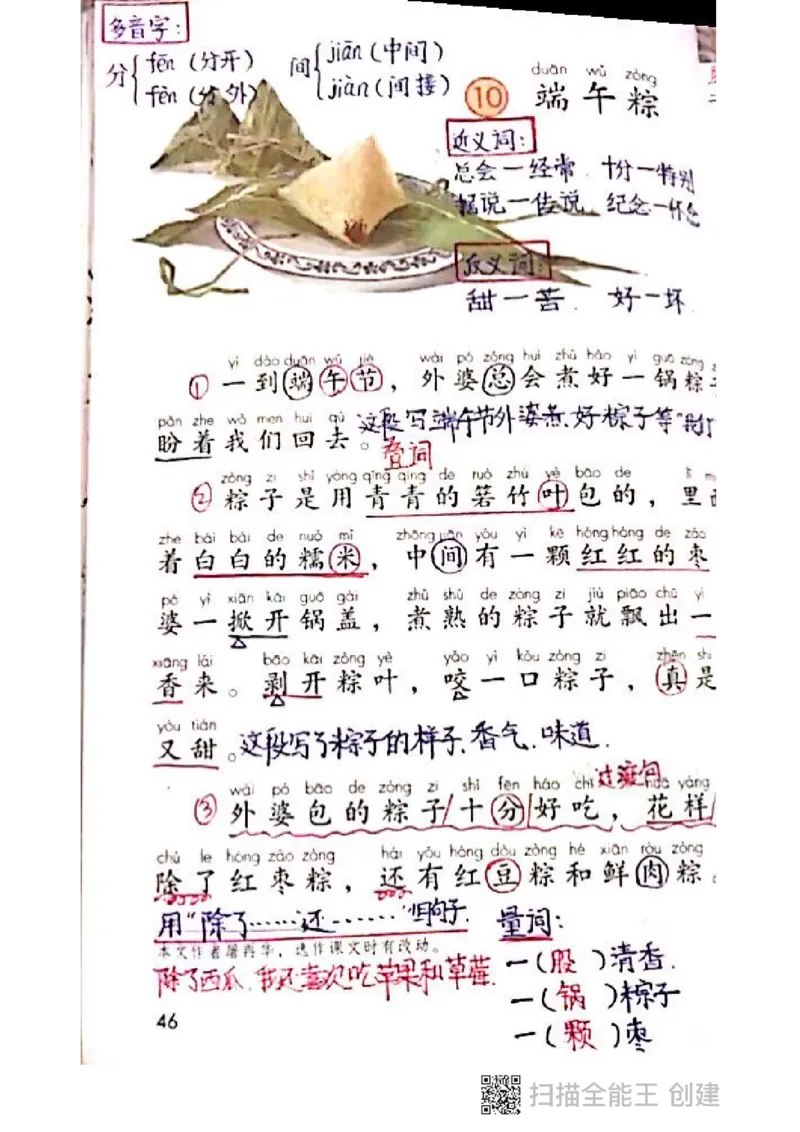 多音字：
分 fēn（分开）
fèn（分外）
间 jiān（中间）
jiàn（间接）
duān wǔ zòng
10 端午粽
近义词：
总会一经常 十分一特别
据说一传说 纪念一怀念
反义词：
甜一苦 好一坏
yí dào duān wǔ jié wài pó zǒng huì zhǔ hǎo yì guō zòng
① 一到端午节，外婆总会煮好一锅粽子
pàn zhe wǒ men huí qù
盼着我们回去。这段写端午节外婆煮好粽子等"我们
叠词
zòng zi shì yòng qīng qīng de ruò zhú yè bāo de
② 粽子是用青青的箬竹叶包的，里面
zhe bái bái de nuò mǐ zhōng jiān yǒu yì kē hóng hóng de zǎo
着白白的糯米，中间有一颗红红的枣
pó yì xiān kāi guō gài zhǔ shú de zòng zi jiù piāo chū yì
婆一掀开锅盖，煮熟的粽子就飘出一
xiāng lái bāo kāi zòng yè yǎo yì kǒu zòng zi zhēn shì
香来。剥开粽叶，咬一口粽子，真是
yòu tián
又甜。这段写了粽子的样子、香气、味道.
过渡句
wài pó bāo de zòng zi shí fēn hǎo chī huā yàng
③ 外婆包的粽子十分好吃，花样
chú le hóng zǎo zòng hái yǒu hóng dòu zòng hé xiān ròu zòng
除了红枣粽，还有红豆粽和鲜肉粽。
用"除了……还……"写句子.
本文作者屠再华，选作课文时有改动。
除了西瓜，我还喜欢吃苹果和草莓.
量词：
一（股）清香.
一（锅）粽子
一（颗）枣
46
扫描全能王 创建